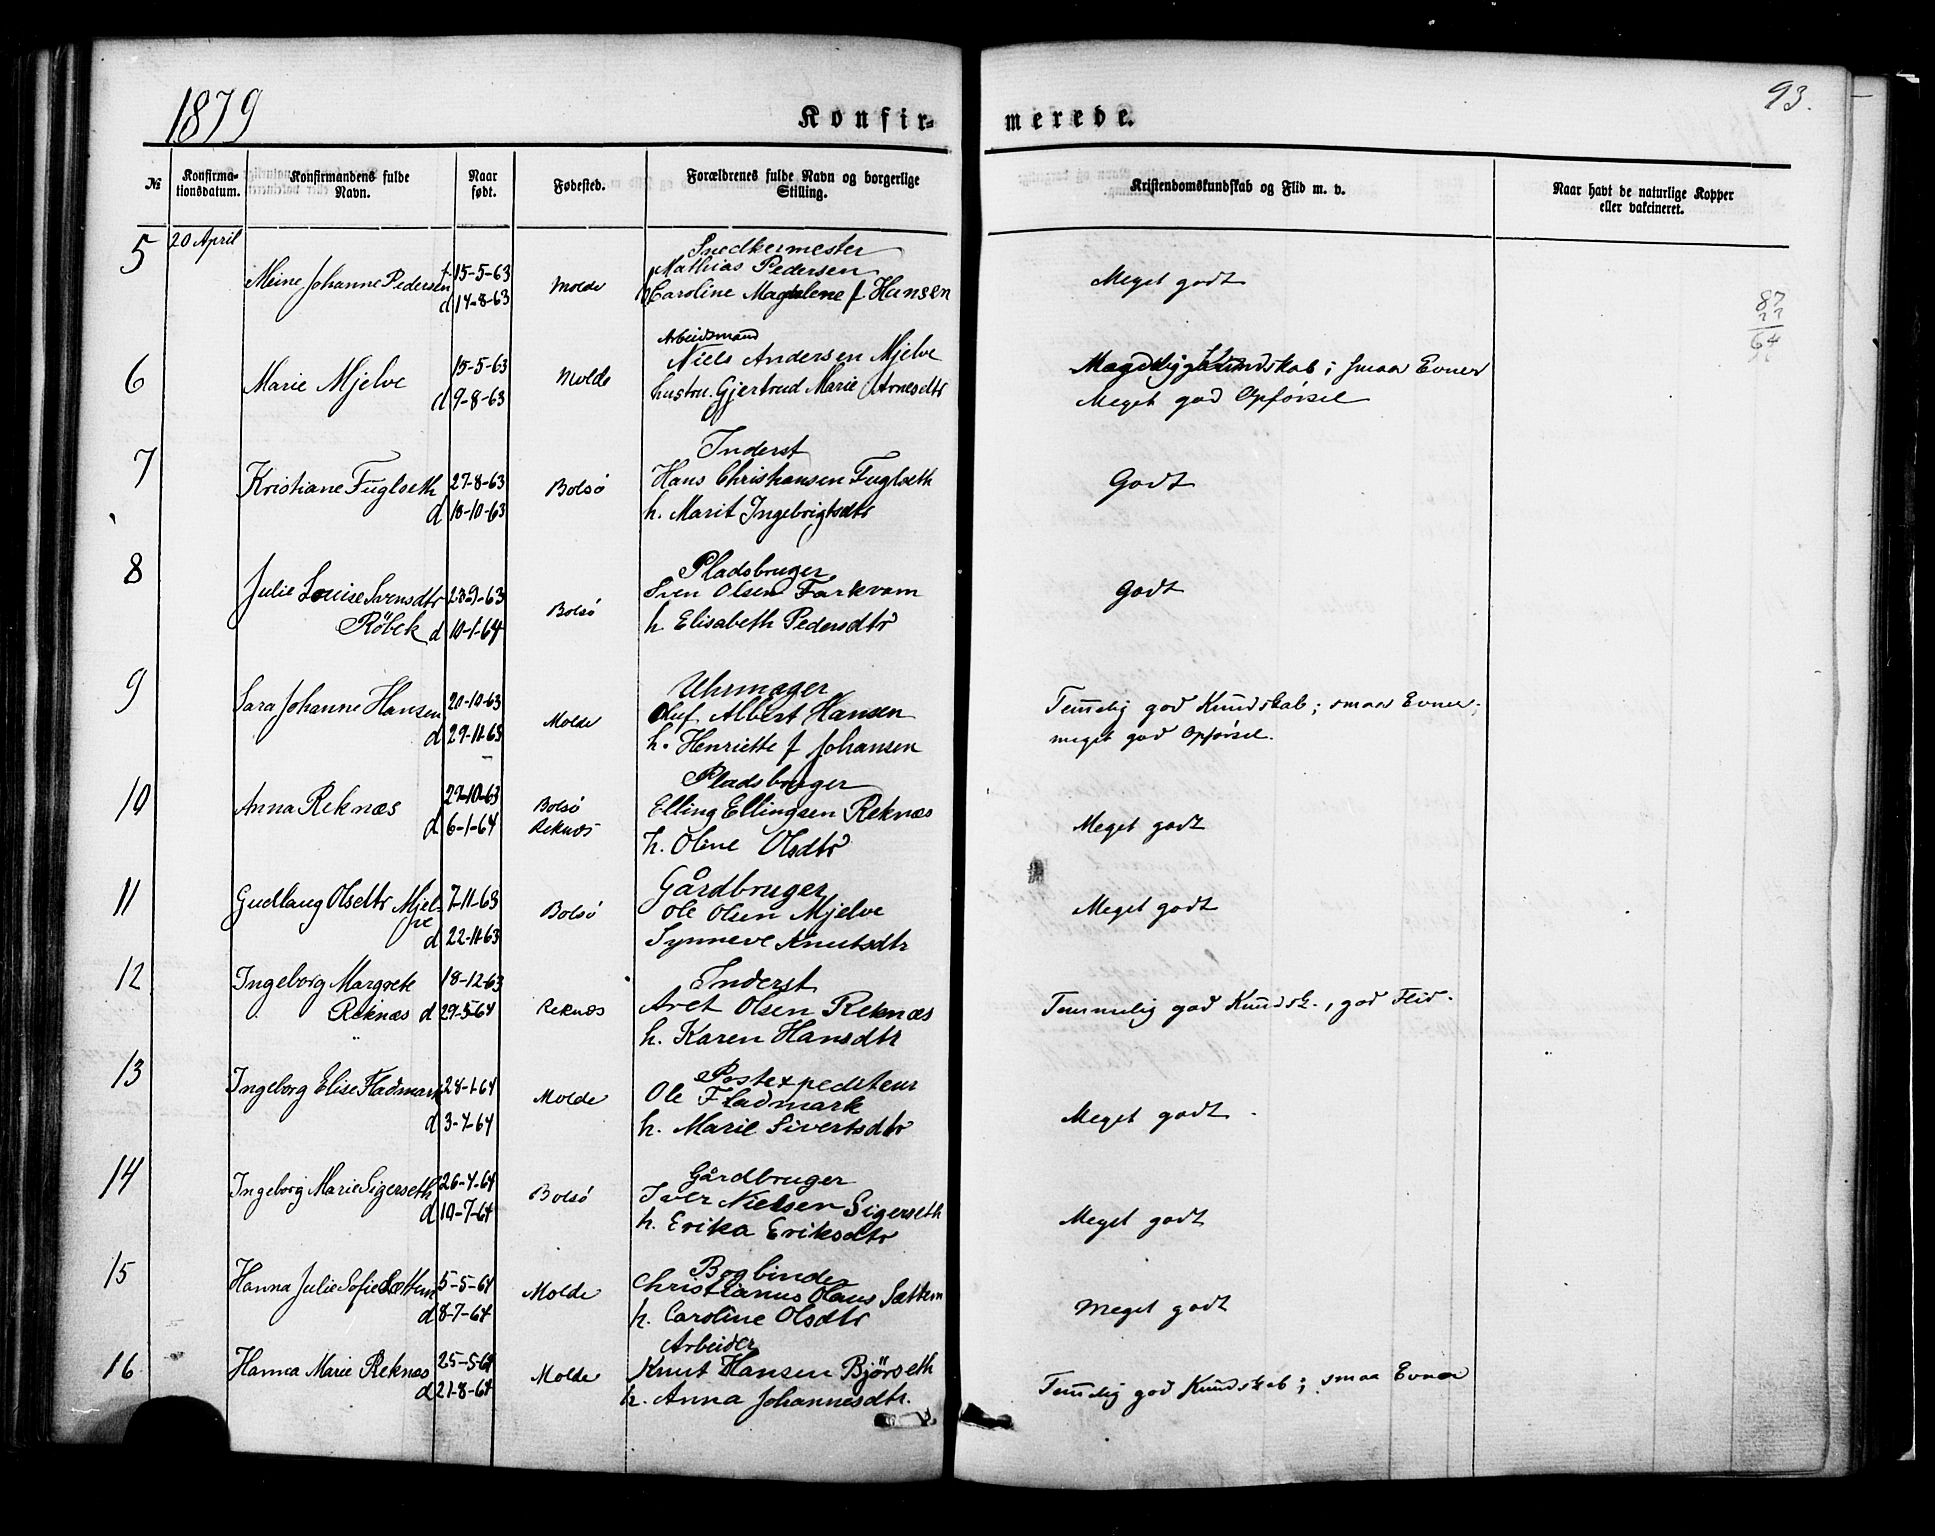 1879
Konfir-
merede.
93.
№
Konfirma-
tionsdatum.
Konfirmandens fulde
Navn.
Naar
født.
Fødested.
Forældrenes fulde Navn og borgerlige
Stilling.
Kristendomskundskab og Flid m. v.
Naar havt de naturlige Kopper
eller vakcineret.
5 20 April
Snedkermester
Meine Johanne Pedersen f 15-5-63 Molde Mathias Pedersen Meget godt
d 14-8-63 Caroline Magdalene f Hansen
87
64
Arbeidsmand
6 Marie Mjelve 15-5-63 Molde Niels Andersen Mjelve Kundskab; smaa Evner
d 9-8-63 hustru. Gjertrud Marie Arnesdtr Meget god Opførsel
7 Inderst
Kristiane Fuglseth 27-8-63 Bolsø Hans Christiansen Fuglseth Godt
d 18-10-63 h. Marit Ingebrigtsdtr
8 Pladsbruger
Julie Louise Svensdtr 28-9-63 Bolsø Sven Olsen Farkvam Godt
Röbek d 10-1-64 h Elisabeth Pedersdtr
9 Uhrmager
Sara Johanne Hansen 20-10-63 Molde Oluf Albert Hansen Temelig god Kundskab; smaa Evner;
d 29-11-63 h. Henriette f Johansen meget god Opførsel.
10 Pladsbruger
Anna Reknæs 29-10-63 Bolsø Elling Ellingsen Reknæs Meget godt
d 6-1-64 Reknæs h. Oline Olsdtr
11 Gårdbruger
Gudlaug Olsdtr Mjel- 7-11-63 Bolsø Ole Olsen Mjelve Meget godt
ve d 22-11-63 Synneve Knutsdtr
12 Ingeborg Margrete 18-12-63 Inderst
Reknæs d 29-5-64 Reknæs Aret Olsen Reknæs Temmelig god Kundsk., god Flid.
h. Karen Hansdtr
13 Postexpediteur
Ingeborg Elise Fladmark 28-1-64 Molde Ole Fladmark Meget godt.
d 3-4-64 h. Marie Sivertsdtr
14 Gårdbruger
Ingeborg Marie Sigerseth 26-4-64 Bolsø Iver Nielsen Sigerseth Meget godt
d 10-7-64 h. Erika Eriksdtr
15 Bogbinder
Hanna Julie Sofie Sættem 5-5-64 Molde Christianus Olaus Sættem Meget godt
d 8-7-64 h. Caroline Olsdtr
Arbeider
16 Hanna Marie Reknæs 25-5-64 Molde Knut Hansen Bjørseth Temelig god Kundskab; smaa Evner
d 21-8-64 h. Anna Johannesdtr.